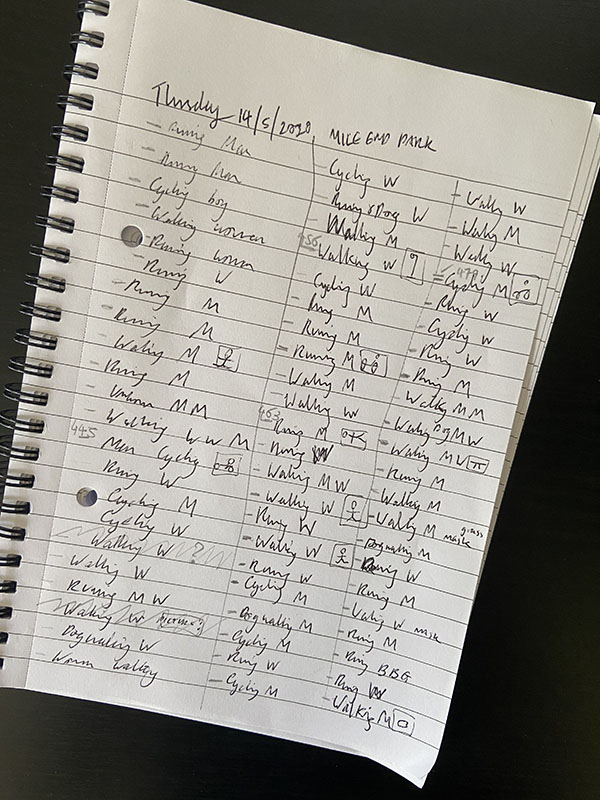 Thursday 14/5/2020, MILE END PARK
- Runing Man
- Runing Man
- Cycling boy
- Walking women
- Runing woman
- Runing W
- Runing M
- Runing M
- Walking M
- Runing M
- Unknown M M
- Walking W W M
445
- Man Cycling
- Runing W
- Cycling M
- Cycling W
- Walking W ?
- Walking W
- Runing M W
- Walking W
- Dogwalking W
- Woman Walking
- Cycling W
- Runing + Dog W
- Walking M
456
- Walking W
- Cycling W
- Runing M
- Runing M
- Runing M
- Walking M
- Walking W
463
- Runing M
- Runing W
- Walking M W
- Walking W
- Runing W
- Walking W
- Runing W
- Cycling M
- Dogwalking M
- Cycling M
- Runing W
- Cycling M
- Walking W
- Walking M
- Walking W
479
- Cycling M
- Runing W
- Cycling W
- Runing W
- Runing M
- Walking M M
- Walking Dog M W
- Walking M
- Runing M
- Walking M
- Walking M mask
- Dogwalking M
- Runing W
- Runing M
- Walking W mask
- Runing M
- Runing BBG
- Runing W
- Walking M